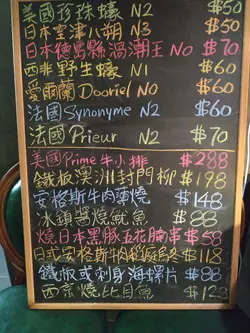 美國珍珠蠔 N2 $50
日本室津八朔 N3 $50
日本德島縣渦潮王 NO $70
西非野生蠔 N1 $60
愛爾蘭 Dooriel NO $60
法國 Synonyme N2 $60
法國 Prieur N2 $70
美國 Prime 牛小排 $288
鐵板澳洲封門柳 $198
安格斯牛肉薄燒 $148
冰鎮醬燒魷魚 $88
燒日本黑豚五花腩串 $58
日式安格斯牛肉稻庭烏冬 $118
鐵板或刺身海螺片 $88
西京燒比目魚 $128